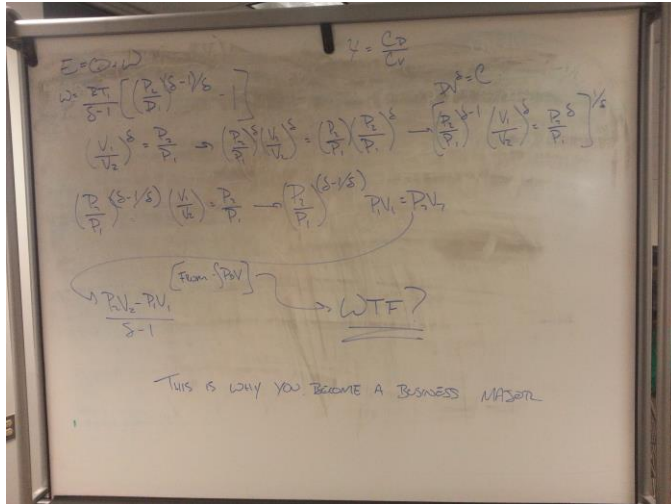 γ = Cp/Cv
E = Q + W
PV^δ = C
W = RT₁/(δ-1) [(P₂/P₁)^(δ-1/δ) - 1]
(V₁/V₂)^δ = P₂/P₁ → (P₂/P₁)^δ (V₁/V₂)^δ = (P₂/P₁)(P₂/P₁)^δ → [(P₂/P₁)^(δ-1) (V₁/V₂)^δ = P₂/P₁^δ]^(1/δ)
(P₂/P₁)^(δ-1/δ) (V₁/V₂) = P₂/P₁ → (P₂/P₁)^(δ-1/δ) P₁V₁ = P₂V₂
[From -∫PdV]
(P₂V₂ - P₁V₁)/(δ-1) → WTF?
THIS IS WHY YOU BECOME A BUSINESS MAJOR